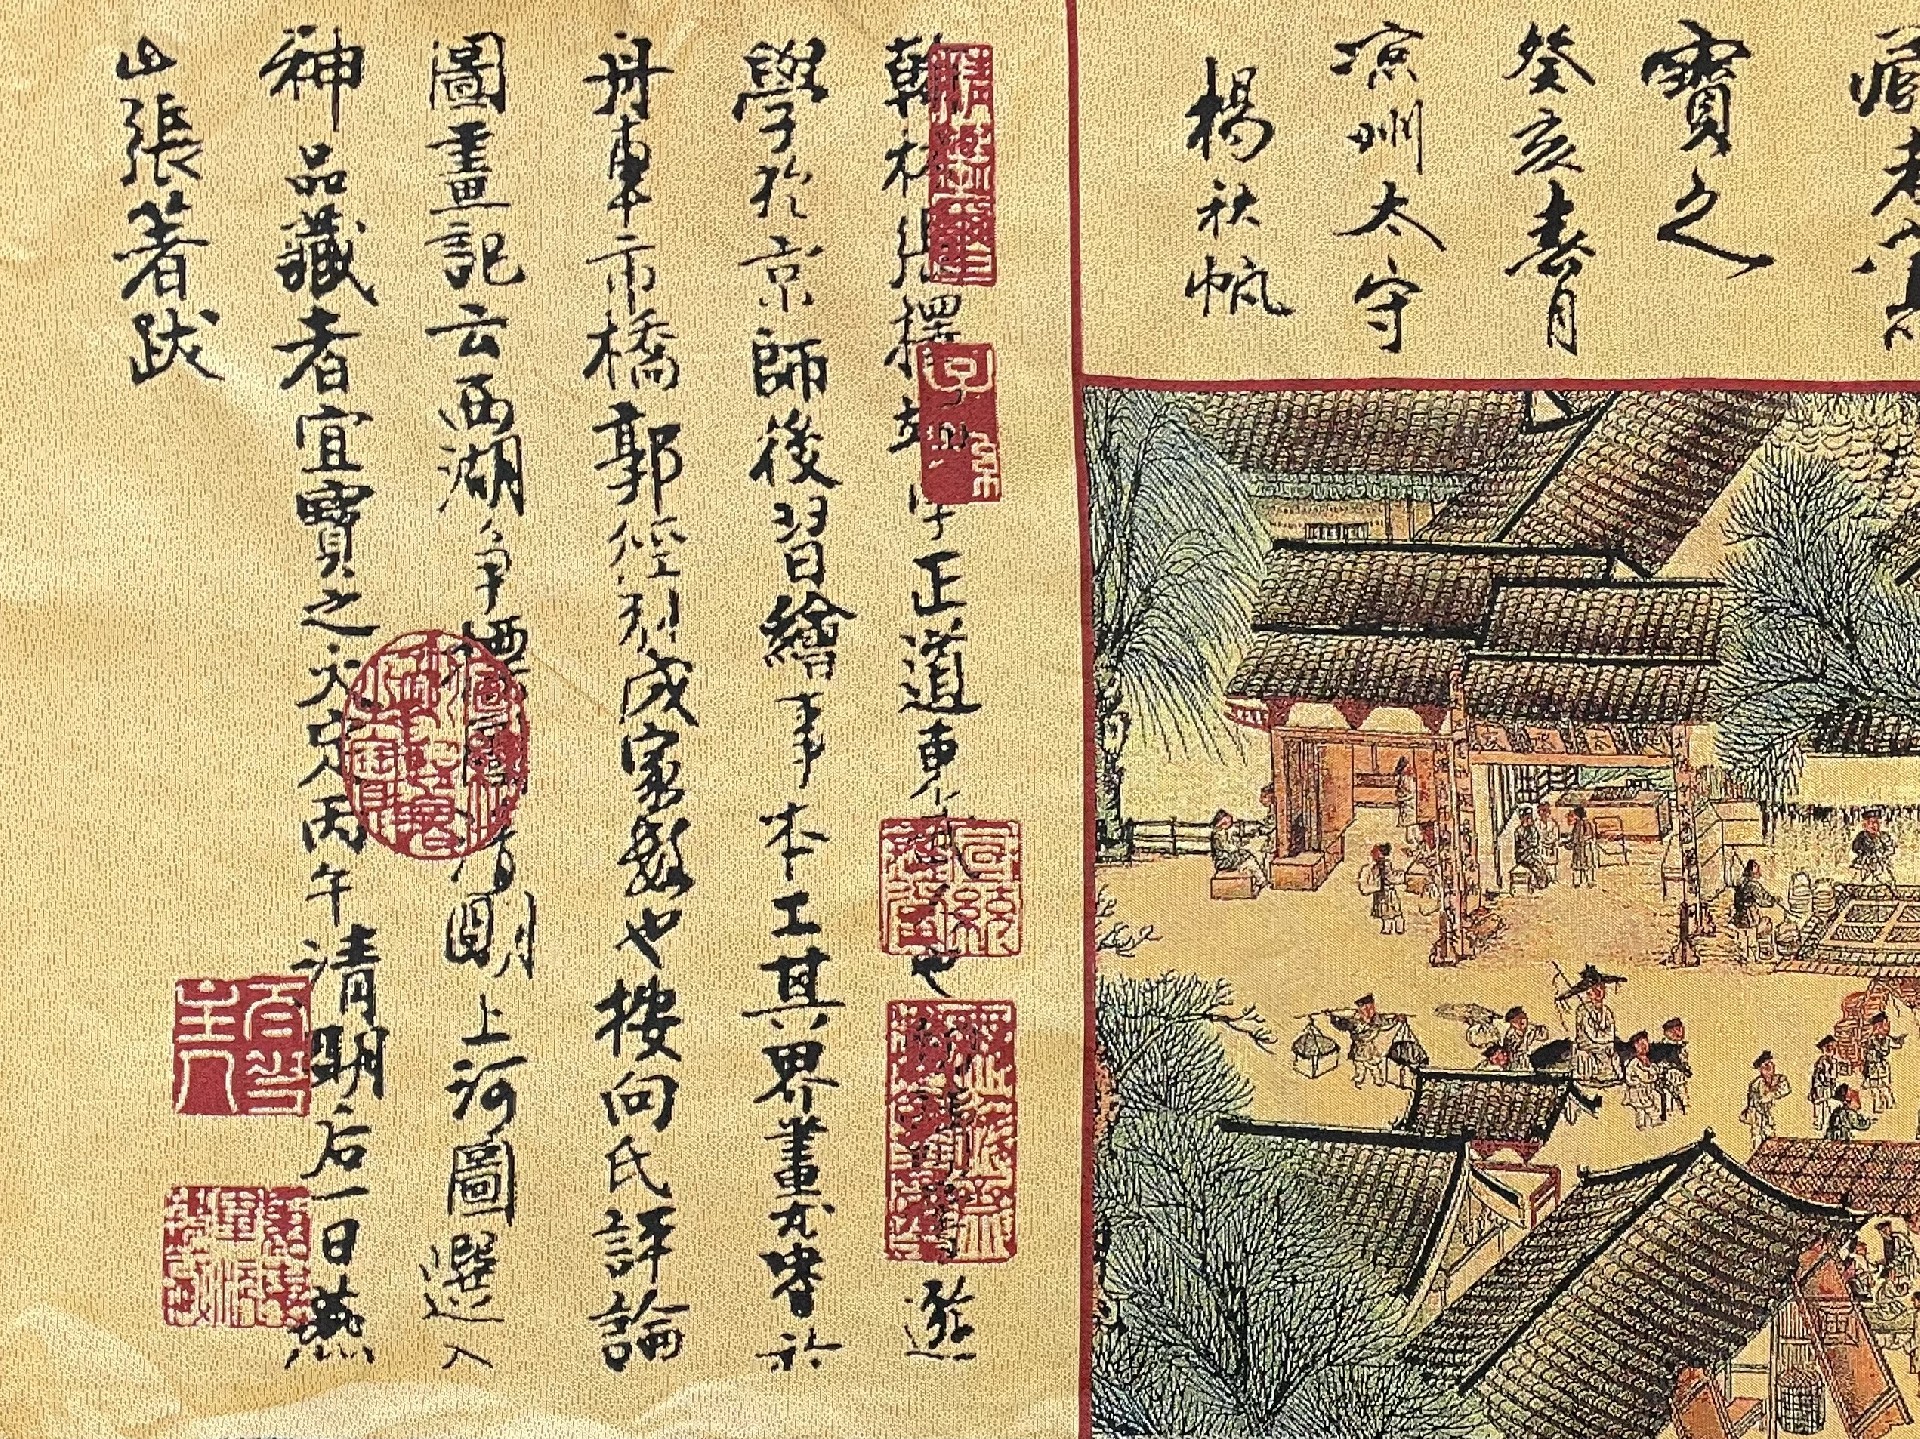 藏者
寶之
癸亥春月
凉州太守
楊秋帆
翰林張擇端字正道東武人也幼讀書遊
學於京師後習繪事本工其界畫尤嗜於
舟車市橋郭徑别成家數也按向氏評論
圖畫記云西湖爭標圖清明上河圖選入
神品藏者宜寶之大定丙午清明后一日燕
山張著跋